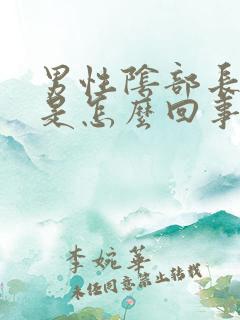 男性陰部長
是怎麼回事
李婉華
未经同意禁止转载